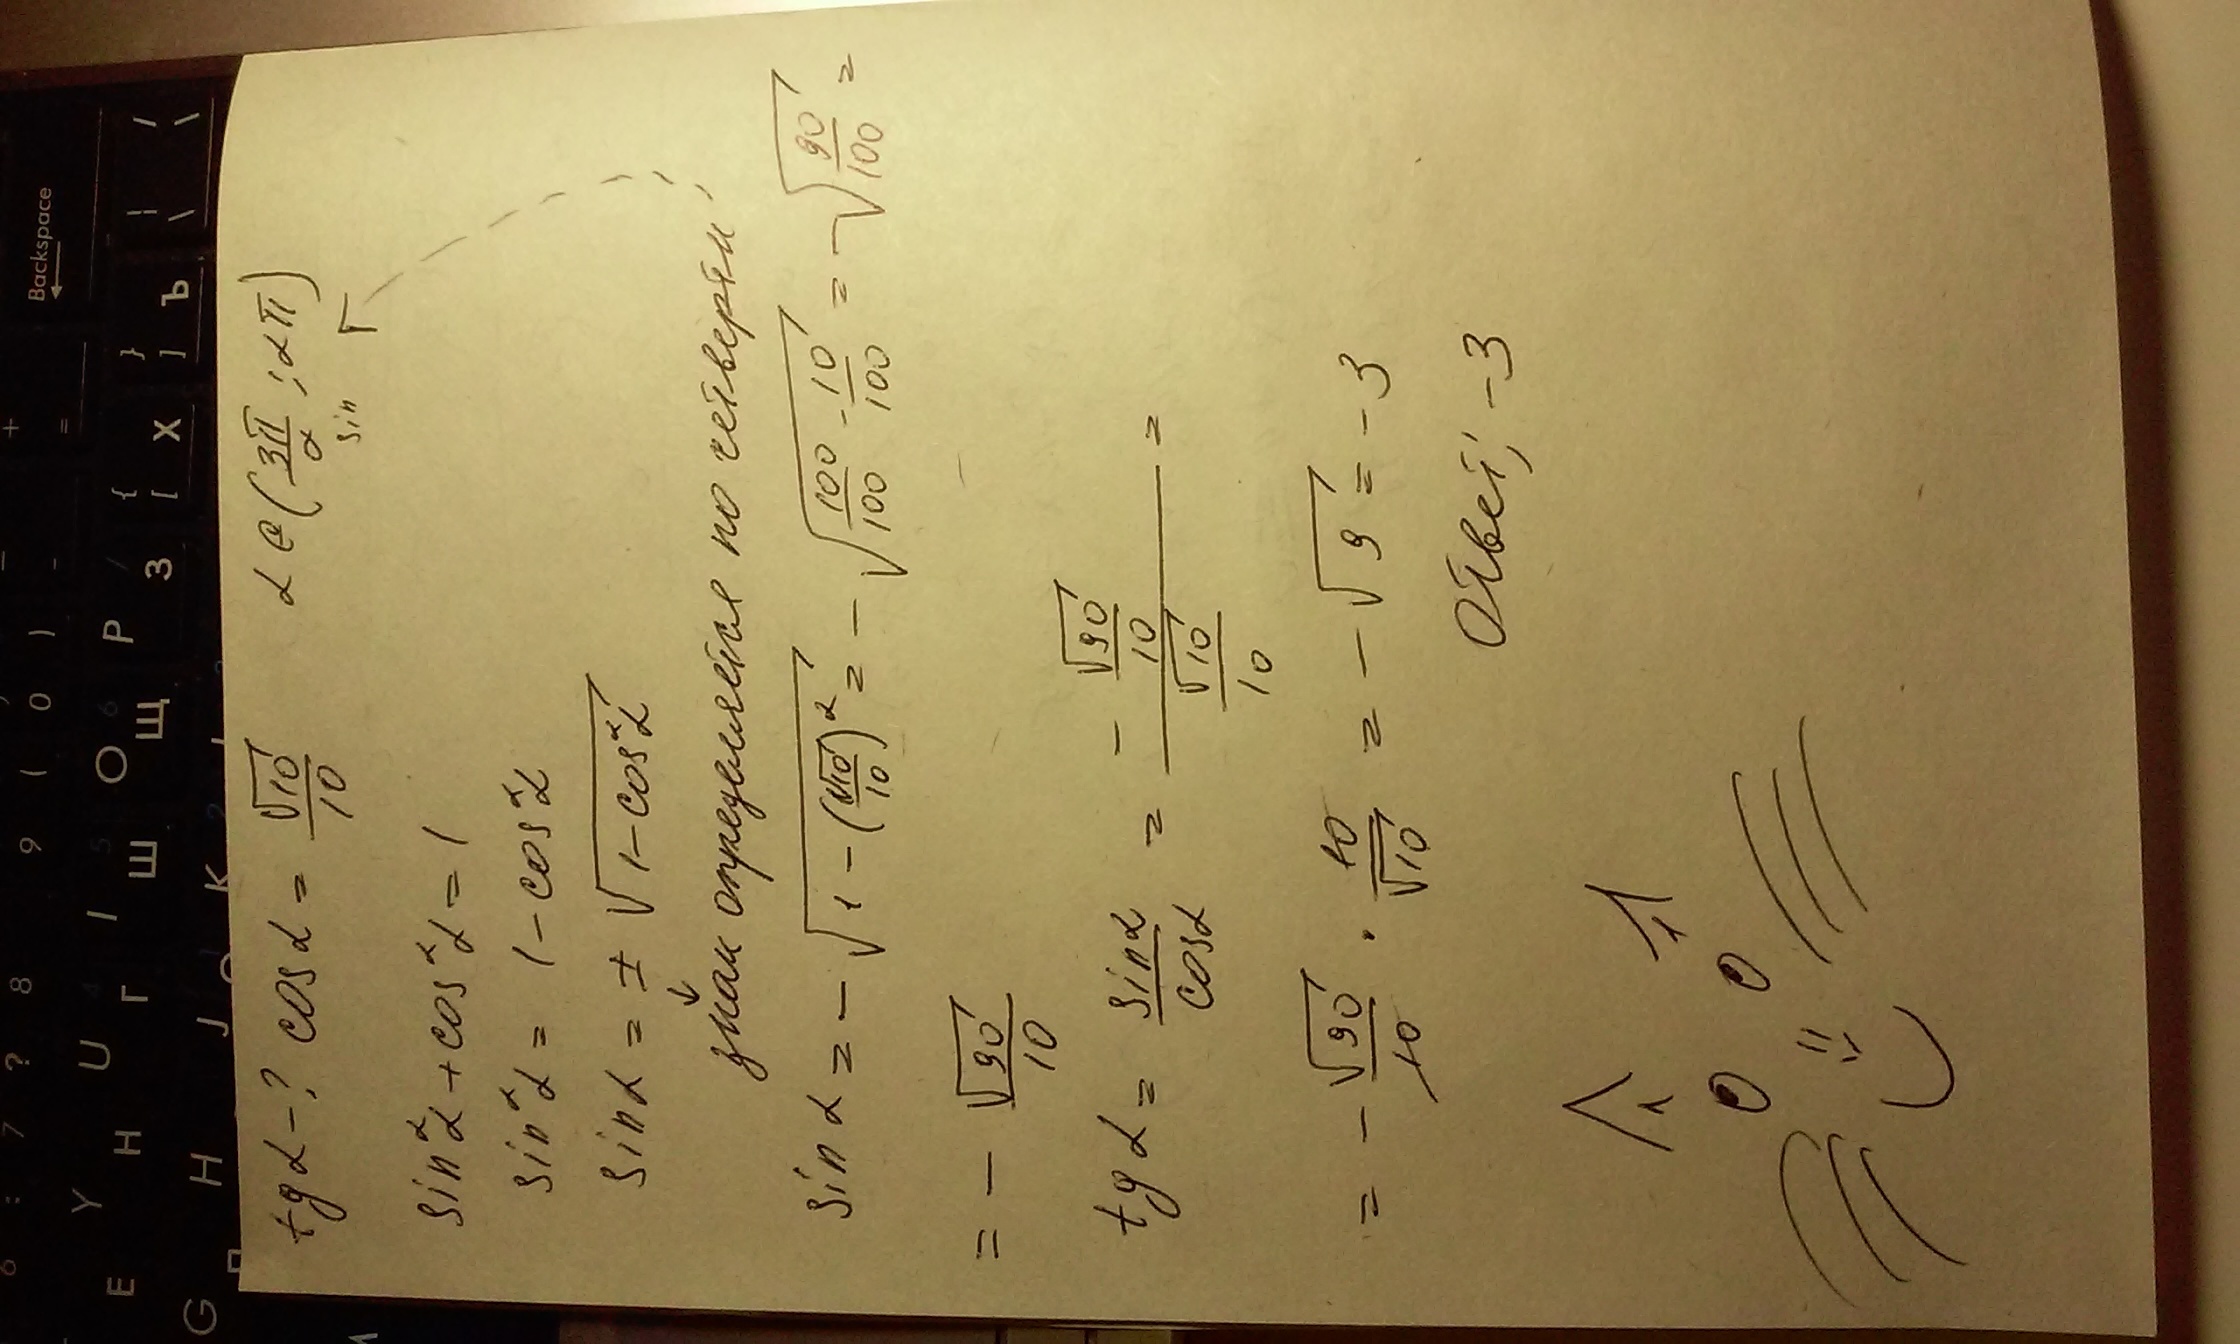 tgα-? cosα = √10/10 α∈(3π/2; 2π)
sin
sin²α + cos²α = 1
sin²α = 1 - cos²α
sinα = ± √(1-cos²α)
знак определяется по четверти
sinα = - √(1-(√10/10)²) = - √(100/100 - 10/100) = - √(90/100) =
= - √90/10
tgα = sinα/cosα = - (√90/10)/(√10/10) =
= - √90/10 · 10/√10 = - √9 = -3
Ответ: -3
Backspace
+
=
-
_
)
0
(
9
8
?
7
:
6
{
[
}
]
|
\
/
\
Х
Ъ
З
Р
Щ
О
Ш
I
Г
U
Н
Y
Е
K
J
H
G